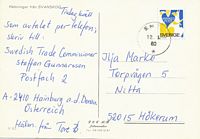 Hälsningar från SVANSKOG
Tisdag kväll
som avtalat per telefon,
skriv till:
Swedish Trade Commissioner
Staffan Gunnarsson
Postfach 2
A-2410 Hainburg a.d. Donau
Österreich
Hälsn. från Tore B.
SVERIGE
80
Ilja Marko
Torpvägen 5
Nitta
52015 Hökerum